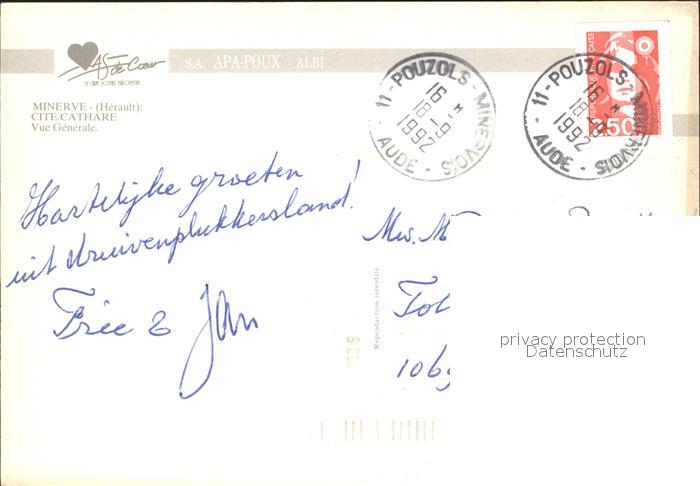 As de Cœur
S.A. APA-POUX - ALBI
MINERVE - (Hérault):
CITE CATHARE
Vue Générale.
11 - POUZOLS - MINERVOIS
16 H
18 - 9
1992
AUDE
11 - POUZOLS - MINERVOIS
16 H
18 - 9
1992
AUDE
2,50
Hartelijke groeten
uit druivenplukkersland!
Free & Jan
Mw. M
Reproduction interdite
privacy protection
Datenschutz
106